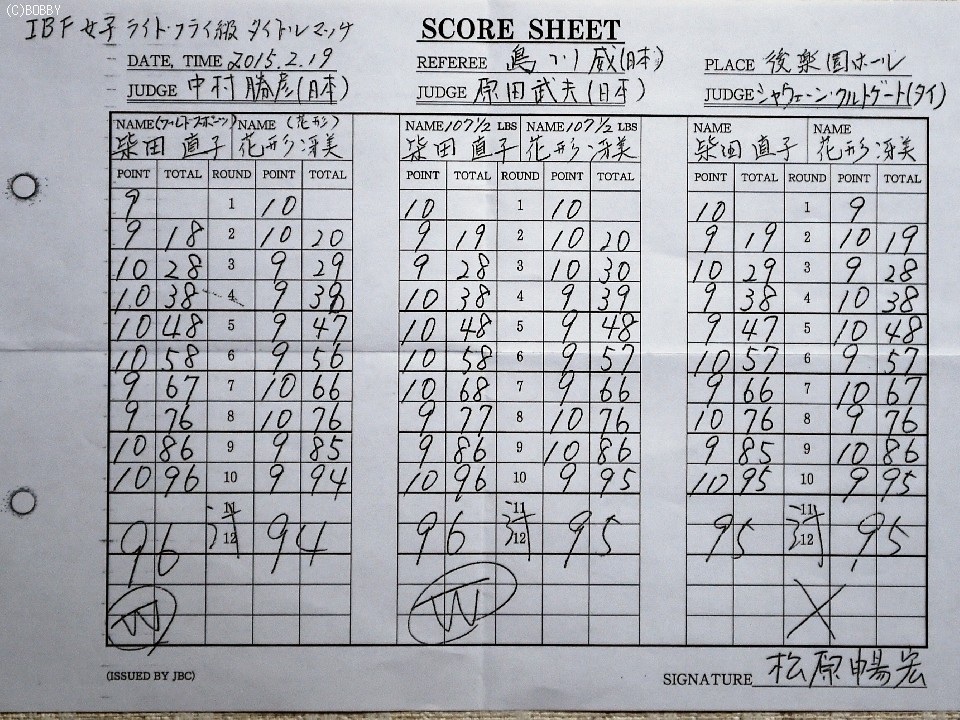 (C)BOBBY
IBF 女子 ライト・フライ級 タイトルマッチ
SCORE SHEET
DATE, TIME 2015.2.19 REFEREE 島川 威(日本) PLACE 後楽園ホール
JUDGE 中村 勝彦(日本) JUDGE 原田武夫(日本) JUDGE シャウェーン・クルトゲート(タイ)
NAME (ワールドスポーツ) NAME (花形) NAME 107 1/2 LBS NAME 107 1/2 LBS NAME NAME
柴田 直子 花形 冴美 柴田 直子 花形 冴美 柴田 直子 花形 冴美
POINT TOTAL ROUND POINT TOTAL POINT TOTAL ROUND POINT TOTAL POINT TOTAL ROUND POINT TOTAL
9 1 10 10 1 10 10 1 9
9 18 2 10 20 9 19 2 10 20 9 19 2 10 19
10 28 3 9 29 9 28 3 10 30 10 29 3 9 28
10 38 4 9 38 10 38 4 9 39 9 38 4 10 38
10 48 5 9 47 10 48 5 9 48 9 47 5 10 48
10 58 6 9 56 10 58 6 9 57 10 57 6 9 57
9 67 7 10 66 10 68 7 9 66 9 66 7 10 67
9 76 8 10 76 9 77 8 10 76 10 76 8 9 76
10 86 9 9 85 9 86 9 10 86 9 85 9 10 86
10 96 10 9 94 10 96 10 9 95 10 95 10 9 95
11 11 11
96 12 94 96 12 95 95 12 95
W W X
(ISSUED BY JBC) SIGNATURE 松原暢宏